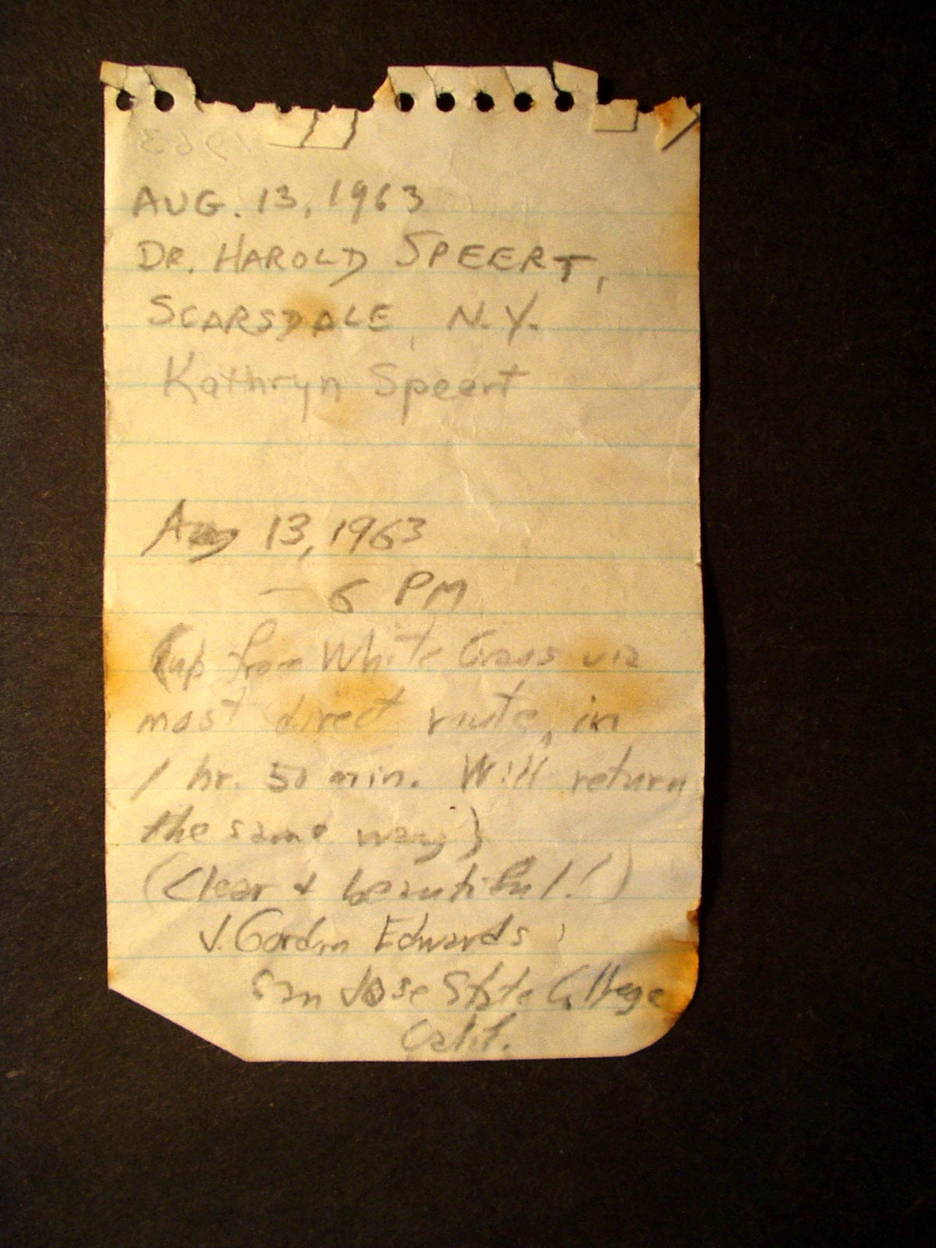 AUG. 13, 1963
DR. HAROLD SPEERT,
SCARSDALE, N.Y.
Kathryn Speert
Aug 13, 1963
— 6 PM
(up from White Cross via
most direct route, in
1 hr. 50 min. Will return
the same way)
(Clear & beautiful!)
J. Gordon Edwards
San Jose State College
Calif.